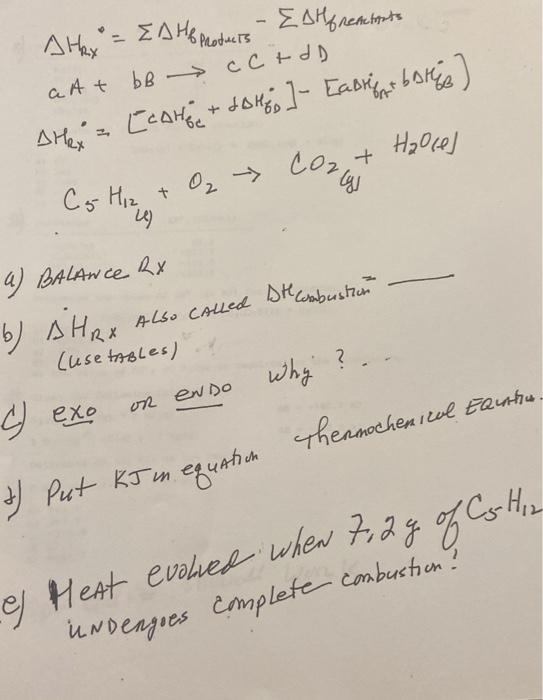 ΔHRx° = ΣΔHf Products - ΣΔHf reactants
aA + bB → cC + dD
ΔHRx° = [cΔHf°C + dΔHf°D] - [aΔHf°A + bΔHf°B]
C5H12(l) + O2 → CO2(g) + H2O(l)
a) BALANCE RX
b) ΔHRX ALSO CALLED ΔH combustion = ____
(use tABLes)
c) exo or ENDO Why? ...
d) Put KJ in equation thermochemical Equation.
e) Heat evolved when 7,2 g of C5H12
UNDergoes complete combustion?